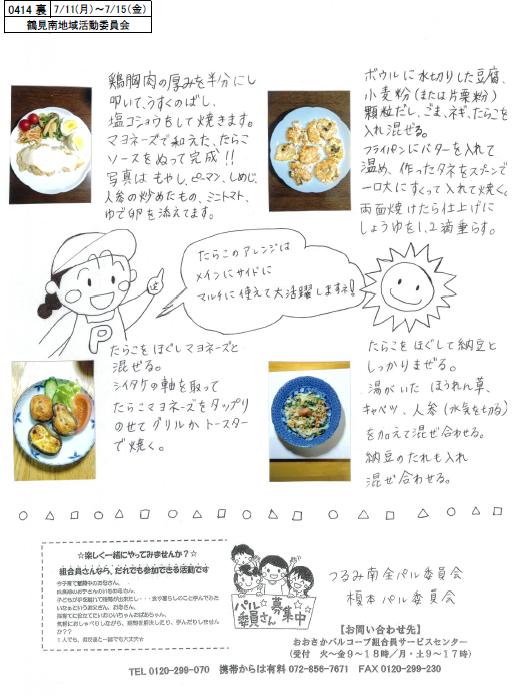 0414 裏
7/11(月)～7/15(金)
鶴見南地域活動委員会
鶏胸肉の厚みを半分にし
叩いて、うすくのばし、
塩コショウもして焼きます。
マヨネーズで和えた、たらこ
ソースをぬって完成!!
写真は もやし、ピーマン、しめじ、
人参の炒めたもの、ミニトマト、
ゆで卵を添えてます。
ボウルに水切りした豆腐、
小麦粉(または片栗粉)
顆粒だし、ごま、ネギ、たらこを
入れ混ぜる。
フライパンにバターを入れて
温め、作ったタネをスプーンで
一口大にすくって入れて焼く。
両面焼けたら仕上げに
しょうゆを1,2滴垂らす。
たらこのアレンジは
メインにサイドに
マルチに使えて大活躍しますネ!
P
たらこをほぐしマヨネーズと
混ぜる。
シイタケの軸を取って
たらこマヨネーズをタップリ
のせてグリルかトースター
で焼く。
たらこをほぐして納豆と
しっかりまぜる。
湯がいた ほうれん草、
キャベツ、人参(水気を切る)
を加えて混ぜ合わせる。
納豆のたれも入れ
混ぜ合わせる。
☆楽しく一緒にやってみませんか?☆
組合員さんなら、だれでも参加できる活動です
今子育て奮闘中のお母さん、
1人でも、お友達と一緒でも大丈夫☆
パル
委員さん
☆募集中
つるみ南全パル委員会
榎本パル委員会
【お問い合わせ先】
おおさかパルコープ組合員サービスセンター
(受付 火～金9～18時/月・土9～17時)
TEL 0120-299-070 携帯からは有料 072-856-7671 FAX 0120-299-230